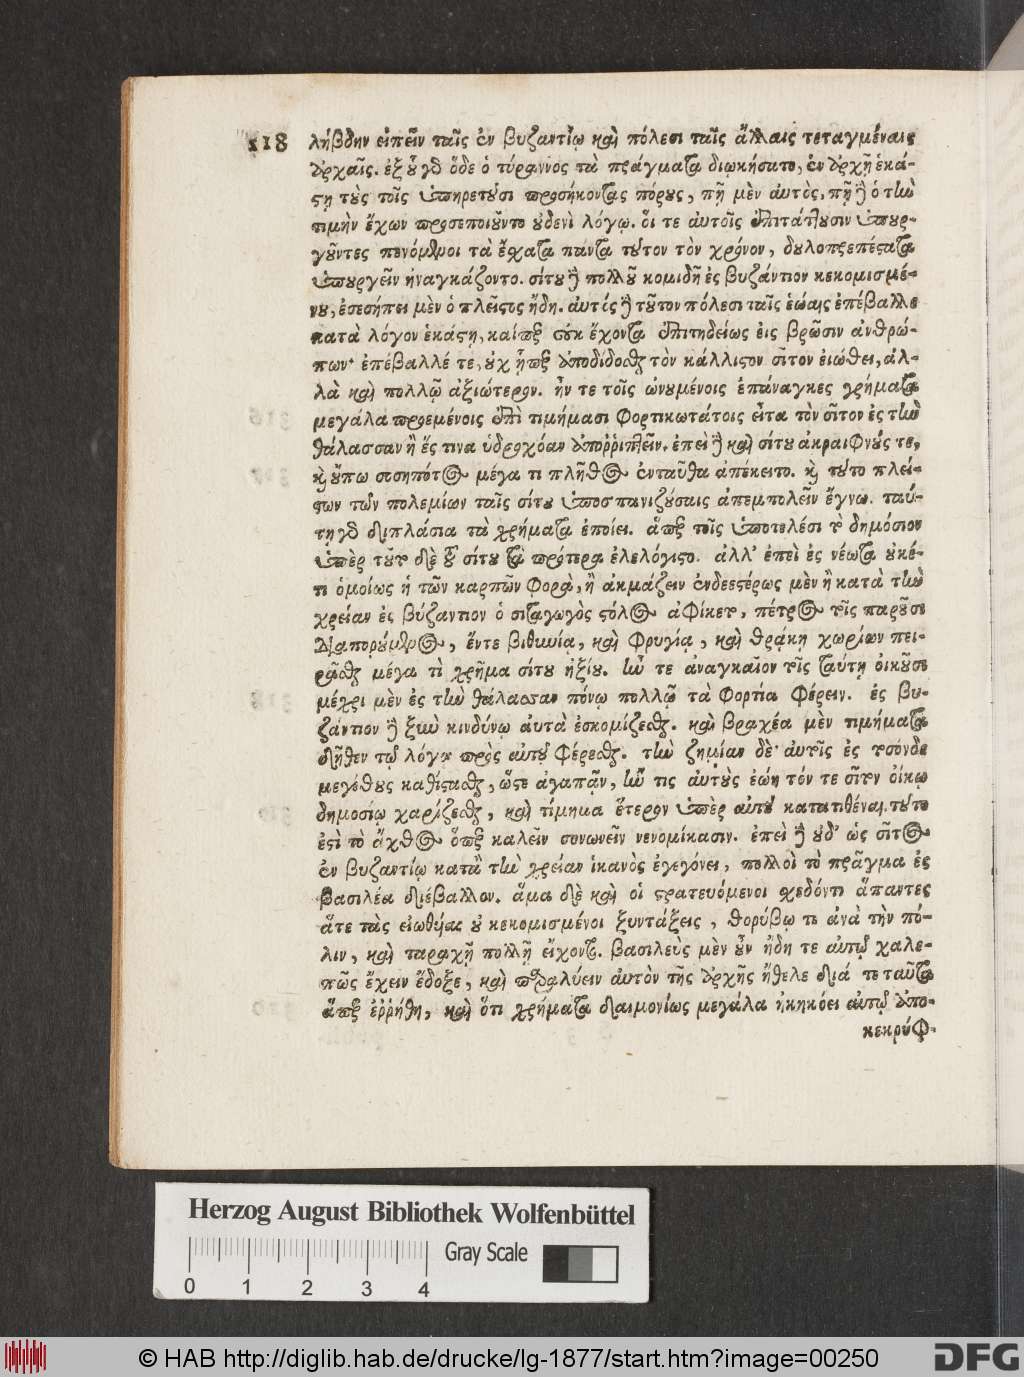 218 λήβδην εἰπεῖν ταῖς ἐν βυζαντίῳ καὶ πόλεσι ταῖς ἄλλαις τεταγμέναις
ἀρχαῖς. ἐξ οὗ γὸ ὅδε ὁ τύραννος τὰ πράγματα διῳκήσατο, ἐν ἀρχῇ ἑκά-
στῃ τοὺς τοῖς ὑπηρετοῦσι προσήκοντας πόρους, πῆ μὲν αὐτὸς, πῆ δὲ ὁ τὴν
τιμὴν ἔχων προσεποιοῦντο οὐδενὶ λόγῳ. οἵ τε αὐτοῖς ἐπιτάττουσιν ὑπουρ-
γοῦντες πενόμενοι τὰ ἔσχατα πάντα τοῦτον τὸν χρόνον, δουλοπρεπέστατα
ὑπουργεῖν ἠναγκάζοντο. σίτου δὲ πολλοῦ κομιδῆ ἐς βυζάντιον κεκομισμέ-
νου, ἐσεσήπει μὲν ὁ πλεῖστος ἤδη. αὐτὸς δὲ τοῦτον πόλεσι ταῖς ἑῴαις ἐπέβαλλε
κατὰ λόγον ἑκάστῃ, καίπερ οὐκ ἔχοντα ἐπιτηδείως εἰς βρῶσιν ἀνθρώ-
πων· ἐπέβαλλέ τε, οὐχ ᾗπερ ἀποδίδοσθαι τὸν κάλλιστον σῖτον εἰώθει, ἀλ-
λὰ καὶ πολλῷ ἀξιώτερον. ἦν τε τοῖς ὠνουμένοις ἐπάναγκες χρήματα
μεγάλα προεμένοις ἐπὶ τιμήμασι φορτικωτάτοις εἶτα τὸν σῖτον ἐς τὴν
θάλασσαν ἢ ἔς τινα ὑδροχόαν ἀποῤῥιπτεῖν. ἐπεὶ δὲ καὶ σίτου ἀκραιφνοῦς τε,
καὶ οὔπω σεσηπότος μέγα τι πλῆθος ἐνταῦθα ἀπέκειτο. καὶ τοῦτο πλεί-
στων τῶν πολεμίων ταῖς σίτου ὑποσπανιζούσαις ἀπεμπολεῖν ἔγνω. ταύ-
τῃ γὸ διπλάσια τὰ χρήματα ἐποίει. ἅπερ τοῖς ὑποτελέσι τὸ δημόσιον
ὑπὲρ τούτου δὴ τοῦ σίτου τὰ πρότερα ἐλελόγιστο. ἀλλ' ἐπεὶ ἐς νέωτα οὐκέ-
τι ὁμοίως ἡ τῶν καρπῶν φορὰ, ἢ ἀκμάζειν ἐνδεεστέρως μὲν ἢ κατὰ τὴν
χρείαν ἐς βυζάντιον ὁ σιταγωγὸς στόλος ἀφίκετο, πέτρος τοῖς παροῦσι
διαπορούμενος, ἔντε βιθυνίᾳ, καὶ φρυγίᾳ, καὶ θράκῃ χωρίων πει-
ρᾶσθαι μέγα τὶ χρῆμα σίτου ἠξίου. ἦν τε ἀναγκαῖον τοῖς ταύτῃ οἰκοῦσι
μέχρι μὲν ἐς τὴν θάλασσαν πόνῳ πολλῷ τὰ φορτία φέρειν. ἐς βυ-
ζάντιον δὲ ξὺν κινδύνῳ αὐτὰ ἐσκομίζεσθαι. καὶ βραχέα μὲν τιμήματα
δῆθεν τῷ λόγῳ πρὸς αὐτοῦ φέρεσθαι. τὴν ζημίαν δὲ αὐτοῖς ἐς τοσόνδε
μεγέθους καθίστασθαι, ὥστε ἀγαπᾶν, ἤν τις αὐτοὺς ἐῴη τόν τε σῖτον οἴκῳ
δημοσίῳ χαρίζεσθαι, καὶ τίμημα ἕτερον ὑπὲρ αὐτοῦ κατατιθέναι. τοῦτό
ἐστὶ τὸ ἄχθος ὅπερ καλεῖν συνωνεῖν νενομίκασιν. ἐπεὶ δὲ οὐδ' ὡς σῖτος
ἐν βυζαντίῳ κατὰ τὴν χρείαν ἱκανὸς ἐγεγόνει, πολλοὶ τὸ πρᾶγμα ἐς
βασιλέα διέβαλλον. ἅμα δὲ καὶ οἱ στρατευόμενοι σχεδόντι ἅπαντες
ἅτε τὰς εἰωθυίας οὐ κεκομισμένοι ξυντάξεις, θορύβῳ τε ἀνὰ τὴν πό-
λιν, καὶ ταραχῇ πολλῇ εἴχοντο. βασιλεὺς μὲν οὖν ἤδη τε αὐτῷ χαλε-
πῶς ἔχειν ἔδοξε, καὶ παραλύειν αὐτὸν τῆς ἀρχῆς ἤθελε διά τε ταῦτα
ἅπερ ἐῤῥήθη, καὶ ὅτι χρήματα δαιμονίως μεγάλα ἠκηκόει αὐτῷ ἀπο-
κεκρύφ-
Herzog August Bibliothek Wolfenbüttel
Gray Scale
0 1 2 3 4
© HAB http://diglib.hab.de/drucke/lg-1877/start.htm?image=00250
DFG